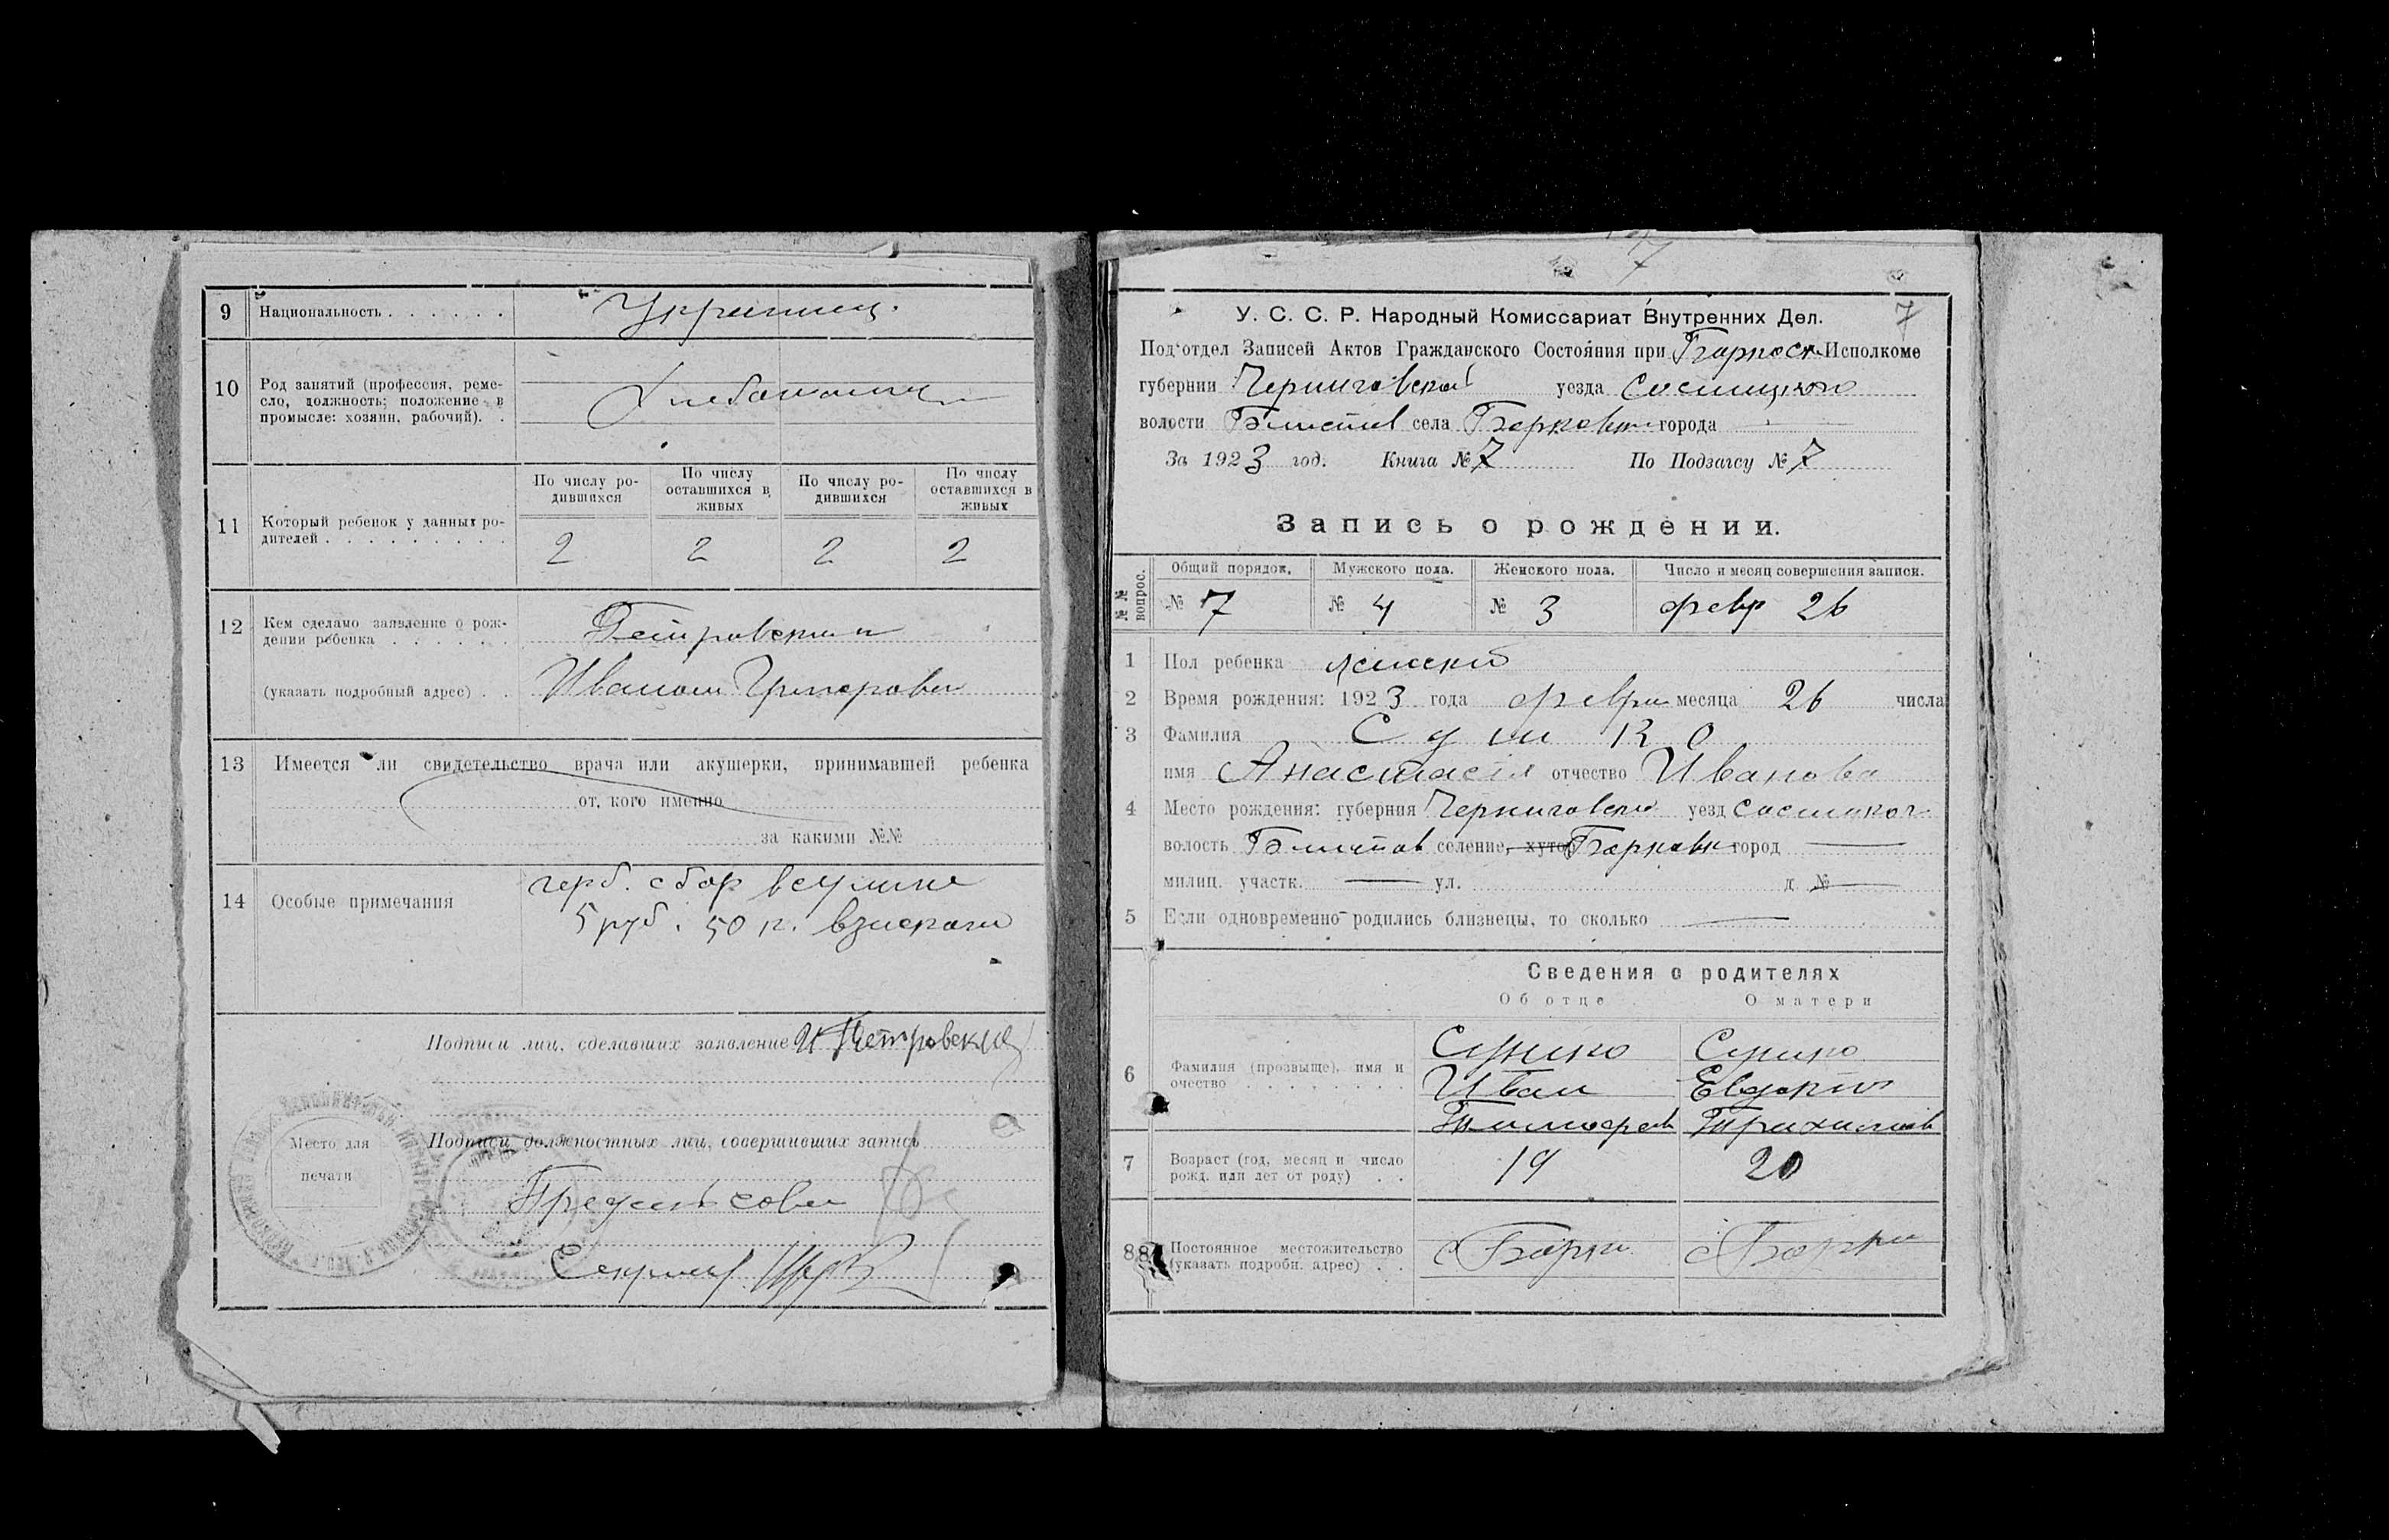 9 Национальность . . . . . . Украинец.
10 Род занятий (профессия, реме-
сло, должность; положение в
промысле: хозяин, рабочий). .
По числу ро-
дившихся
По числу
оставшихся в
живых
По числу ро-
дившихся
По числу
оставшихся в
живых
11 Который ребенок у данных ро-
дителей . . . . . . . . .
2 2 2 2
12 Кем сделамо заявление о рож-
дении ребенка . . . . . .
Петровским
(указать подробный адрес) . . Иваном Григоровом
13 Имеется ли свидетельство врача или акушерки, принимавшей ребенка
от, кого именно
за какими №№
14 Особые примечания
герб. сбор в сумме
5 руб. 50 к. взыскано
Подписи лиц, сделавших заявление И Петровский
Подписи должностных лиц, совершивших запись
Место для
печати
7
7
У. С. С. Р. Народный Комиссариат Внутренних Дел.
Под'отдел Записей Актов Гражданского Состояния при Исполкоме
губернии Черниговской уезда Сосницкого
волости села города
За 1923 год. Книга № 7 По Подзагсу № 7
Запись о рождении.
№ № вопрос.
Общий порядок. Мужского пола. Женского пола. Число и месяц совершения записи.
№ 7 № 4 № 3 февр 26
1 Пол ребенка женский
2 Время рождения: 1923 года февра месяца 26 числа
3 Фамилия
имя Анастасия отчество Иванова
4 Место рождения: губерния Черниговская уезд
волость селение, хутор город
милиц. участк. ул. д №
5 Если одновременно родились близнецы, то сколько
Сведения о родителях
Об отце О матери
6 Фамилия (прозвыще), имя и
очество . . . . . . . .
Иван Евдокия
7 Возраст (год, месяц и число
рожд. или лет от роду) . .
19 20
8 Постоянное местожительство
(указать подробн. адрес) . .
с Борки с Борки